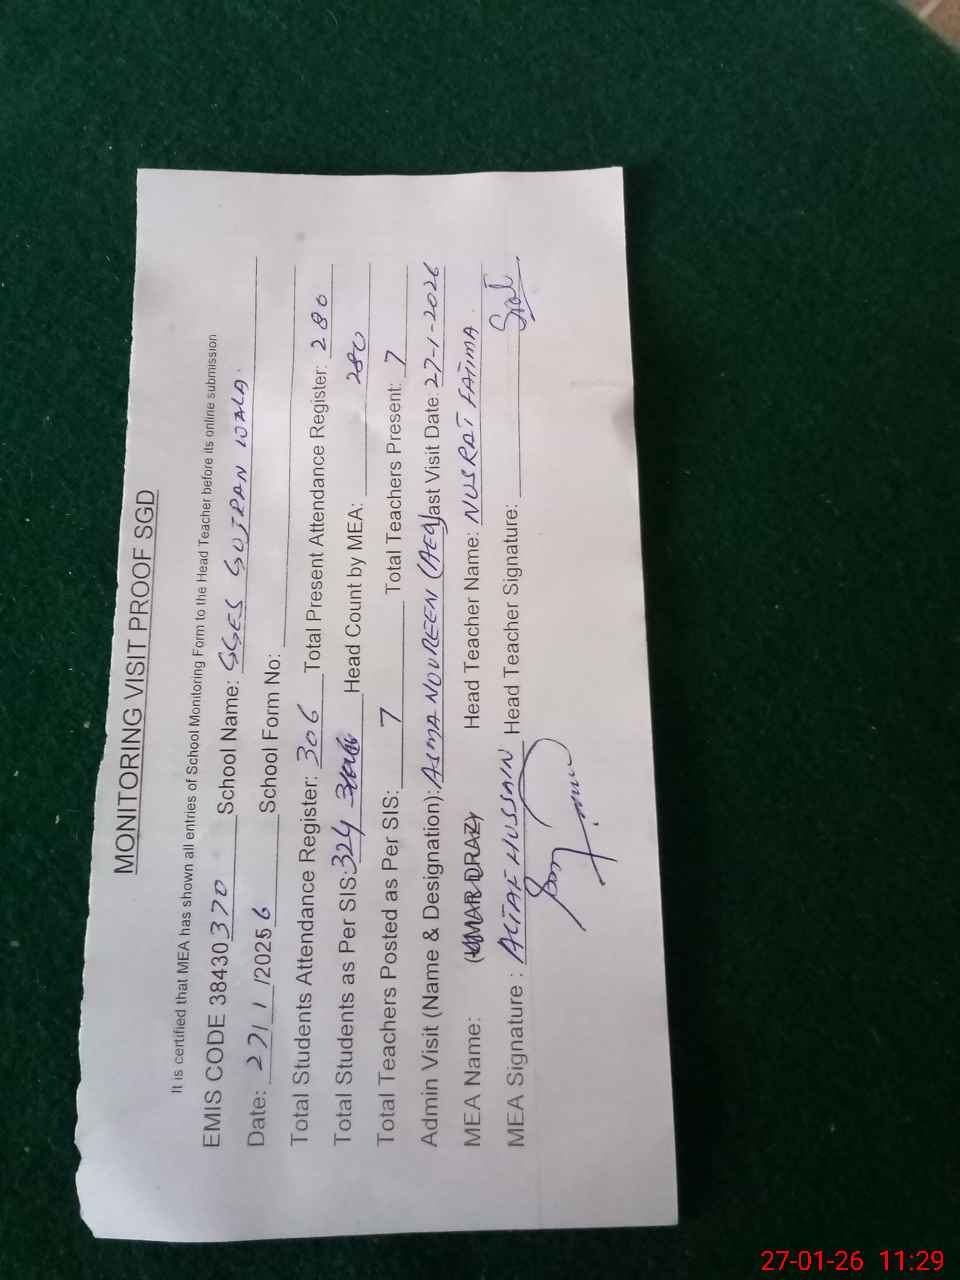 MONITORING VISIT PROOF SGD
It is certified that MEA has shown all entries of School Monitoring Form to the Head Teacher before its online submission
EMIS CODE 38430370 School Name: GGES GUJRAN WALA.
Date: 27/1/20256 School Form No:
Total Students Attendance Register: 306 Total Present Attendance Register: 280
Total Students as Per SIS: 324 Head Count by MEA: 280
Total Teachers Posted as Per SIS: 7 Total Teachers Present: 7
Admin Visit (Name & Designation): ASMA NOUREEN (AEO) Last Visit Date: 27-1-2026
MEA Name: (UMAR DRAZ) Head Teacher Name: NUSRAT FATIMA.
MEA Signature : ALTAF HUSSAIN Head Teacher Signature:
27-01-26 11:29